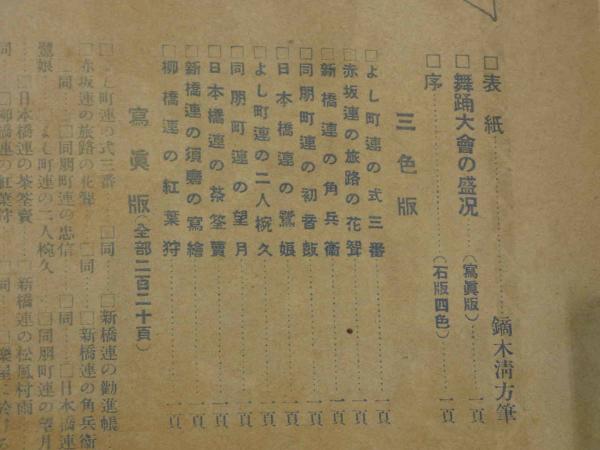 □表紙………鏑木淸方筆
□舞踊大會の盛况……(寫眞版)……一頁
□序………(石版四色)……一頁
三色版
□よし町連の式三番……一頁
□赤坂連の旅路の花聟……一頁
□新橋連の角兵衞……一頁
□同朋町連の初音皷……一頁
□日本橋連の鷺娘……一頁
□よし町連の二人椀久……一頁
□同朋町連の望月……一頁
□日本橋連の茶筌賣……一頁
□新橋連の須磨の寫繪……一頁
□柳橋連の紅葉狩……一頁
寫眞版(全部二百二十頁)
□よし町連の式三番……□同……□新橋連の勸進帳
□赤坂連の旅路の花聟……□同……□新橋連の角兵衞
□同……□同朋町連の忠信……□同……□日本橋連
鷺娘……よし町連の二人椀久……□同朋町連の望月
□日本橋連の茶筌賣……□新橋連の松風村雨
同……□柳橋連の紅葉狩……□同